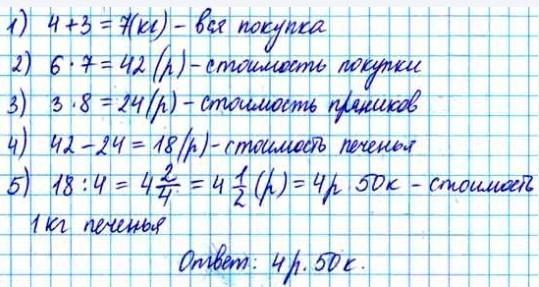 1) 4 + 3 = 7(кг) – вся покупка
2) 6 · 7 = 42 (р) – стоимость покупки
3) 3 · 8 = 24 (р) – стоимость пряников
4) 42 – 24 = 18 (р) – стоимость печенья
5) 18 : 4 = 4 2/4 = 4 1/2 (р) = 4р 50к – стоимость
1 кг печенья
Ответ: 4 р. 50 к.